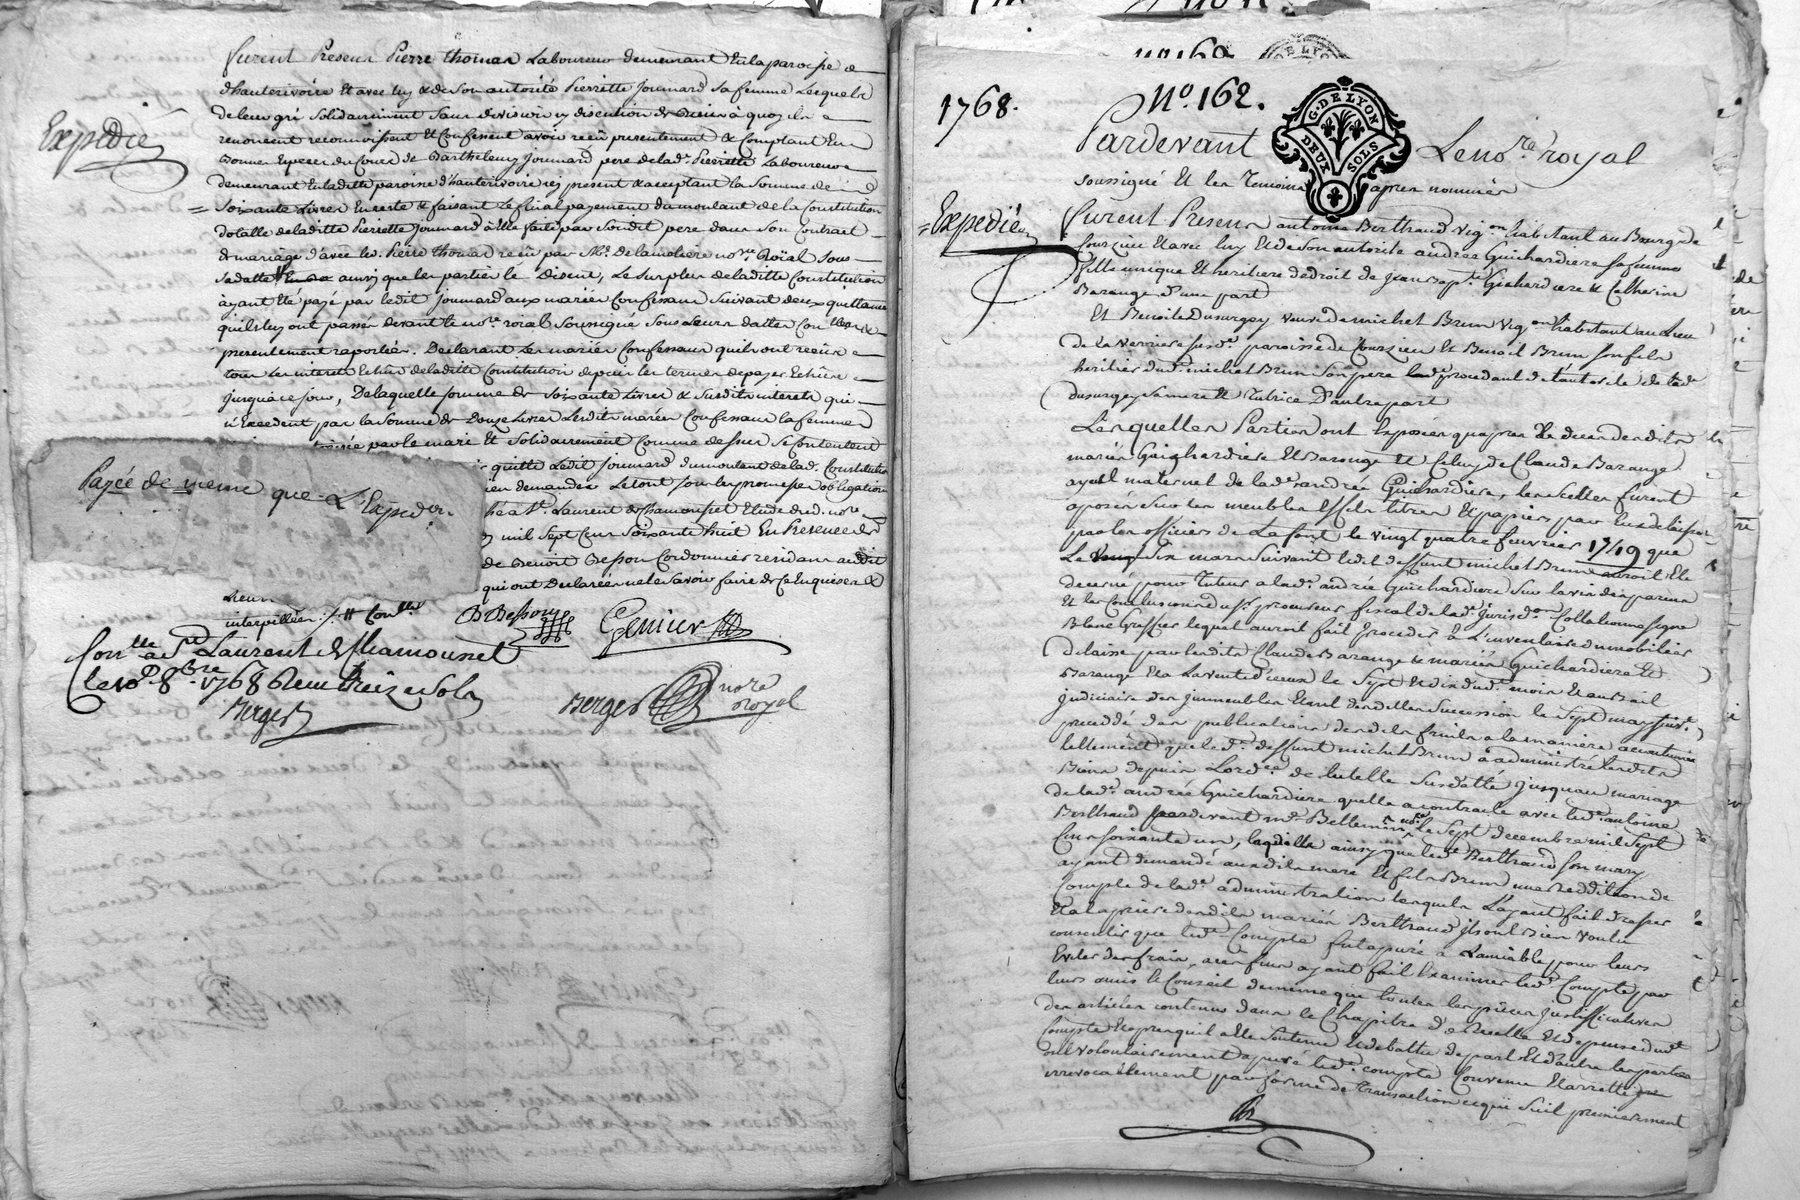 furent Presens Pierre thomas Laboureur demeurant En la paroisse
d'hauterivoire Et avec luy & de son autorité Pierrette Joumard Sa femme Lesquels
de leur gré Solidairement Sans division ny discution de Biens à quoy ils
renoncent reconnoissent Et Confessent avoir reçû presentement & Comptant En
Bonnes Especes du Cours de Barthelemy Joumard pere de lad.e Pierrette Laboureur
demeurant En ladite paroisse d'hauterivoire icy present & acceptant la Somme de
Soixante Livres En reste & faisant Le final payement du montant de la Constitution
dotalle de ladite Pierrette Joumard à Elle faite par Sondit pere dans Son Contract
de mariage d'avec led. Pierre thomas reçû par Me. Delamoliere nore Roïal Sous
Sa datte ainsy que les parties le Disent, Le Surplus de ladite Constitution
ayant Eté payé par ledit Joumard aux mariés Confessans Suivant deux quittances
qu'ils luy ont passés devant le nore roïal Soussigné Sous Leurs dattes
presentement raportées. Declarant Les mariés Confessans qu'ils ont reçûs
tous les interets Echus de ladite Constitution depuis les termes de payer Echûs
jusqu'à ce jour, De laquelle Somme de Soixante Livres & Susdits interets qui
n'Excedent pas la Somme de Douze Livres Lesdits mariés Confessans la femme
par le mari Et Solidairement Comme dessus Se Contentent
quitte Ledit Joumard du montant de lad. Constitution
demander Le tout Sous les promesses obligations
St. Laurent de Chamousset Etude du d. nore
mil Sept Cens Soixante huit En Presence de
de Benoit Besson Cordonnier residans audit
qui ont Declarés ne le Savoir faire de Ce Enquis &
interpellés
Expedié
Payée de meme que L'Exped.on
B Besson
Genier
Con.lle a St Laurent de Chamousset
le 8bre 1768 Reçu treize Sols
Berger
Berger nore Royal
1768.
No. 162.
G. DE LYON
DEUX SOLS
Pardevant Le nore royal
soussigné Et les Temoins apres nommés
Expedié
furent Presens antoine Berthaud Vig.on habitant au Bourg de
Courzieu Et avec luy Et de son autorité andrée Guichardiere sa femme
fille unique Et heritiere de droit de Jean Bapt. Guichardiere & Catherine
Barange d'une part
Et Benoite Dusurgey veuve de michel Brun Vig.on habitant au Lieu
de la Verriere susd.e paroisse de Courzieu Et Benoit Brun son fils
heritier dud. michel Brun Son pere procedant de l'autorité de lad.
dusurgey Sa mere Et Tutrice D'autre part
Lesquelles Parties ont Exposées qu'apres Le deces desdits
mariés Guichardiere Et Barange Et Celuy de Claude Barange
ayeul maternel de lad.e andrée Guichardiere, les scellés furent
aposés Sur les meubles Effets titres Et papiers par Eux delaissés
par les officiers de La font le vingt quatre fevrier 1749 que
Le Six mars Suivant ledit deffunt michel Brun auroit Eté
decerné pour Tuteur a lad.e andrée Guichardiere Sur lavis des parens
Et les Conclusions du Sr. procureur fiscal de lad.e Jurisd.on Collationné signé
Blanc Greffier lequel auroit fait proceder à L'inventaire du mobilier
delaissé par lesdits Claude Barange & mariés Guichardiere Et
Barange Et a la vente d'iceux le Sept Et dix dud. mois Et au Bail
judiciaire des immeubles Etant desdites Succession le Sept may suiv.t
precedé des publications desdits fruits a la maniere accoutumée
tellement que led. deffunt michel Brun à administré lesdits
Biens depuis Lord.ce de tutelle Susdatté jusqu'au mariage
de lad.e andrée Guichardiere quelle a contracté avec led. antoine
Berthaud pardevant me. Bellemin nore Le Sept decembre mil Sept
Cens Soixante un, laquelle ainsy que led. Berthaud Son mary
ayant demandé ausdits mere Et fils Brun une reddition de
Compte de lad.e administration lesquels L'ayant fait dresser
Et a la priere desdits mariés Berthaud ils ont Bien voulu
consentir que led. Compte fut apuré à Lamiable pour leurs
Eviter des frais, aces fins ayant fait Examiner led. Compte par
leurs amis Et Conseil de meme que toutes les pieces justificatives
des articles contenus dans le Chapitre de recette Et depense dud.
Compte Et apres qu'il a Eté Soutenu Et debattu de part Et d'autre les parties
ont volontairement apuré led. compte Convenu Et arretté
irrevocablement par forme de Transaction ce qui Suit premierement